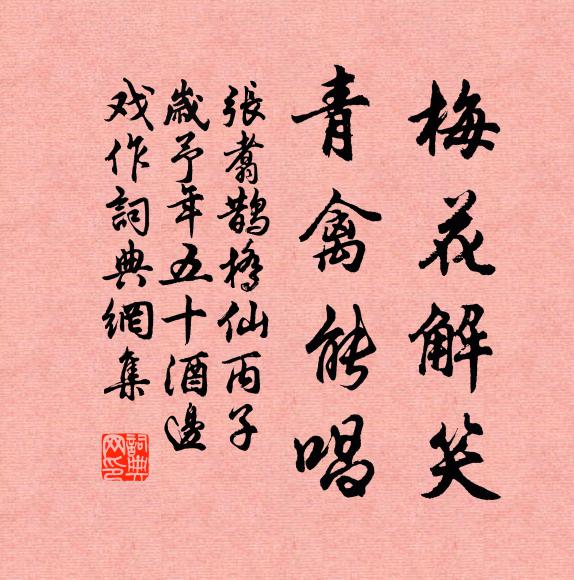 梅花解笑
青禽能唱
張翥鵲橋仙丙子
歲予年五十酒邊
戏作詞典網集
詞典网印